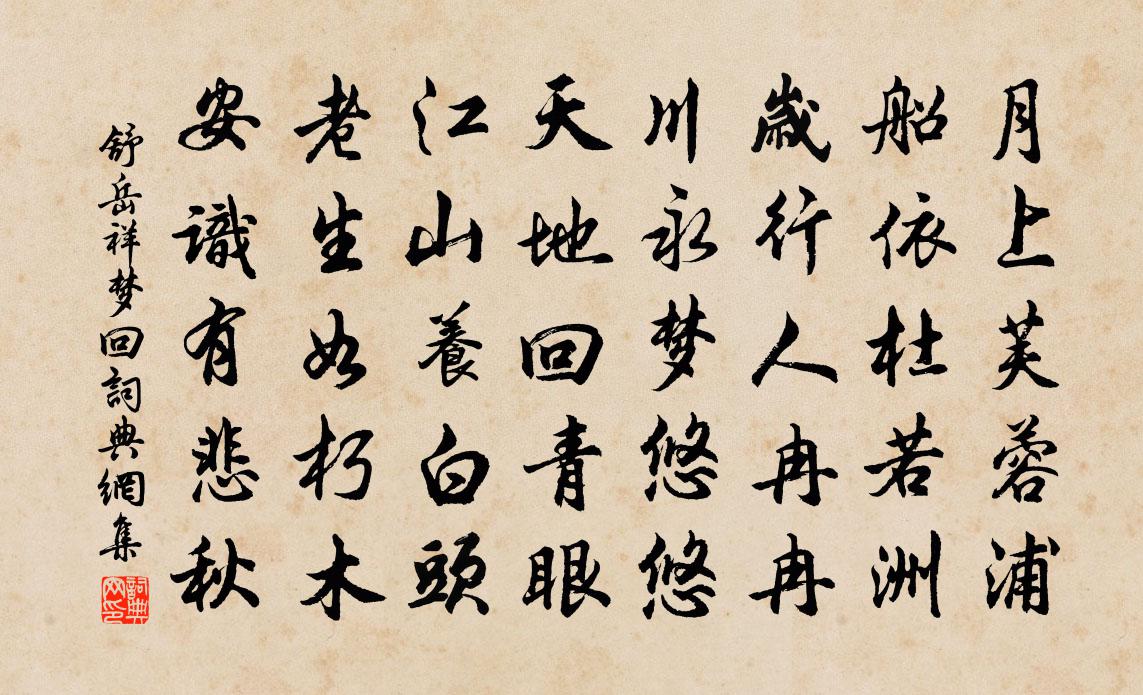 月上芙蓉浦
船依杜若洲
歲行人冉冉
川永梦悠悠
天地回青眼
江山養白頭
老生如朽木
安識有悲秋
舒岳祥梦回詞典網集
詞典网印